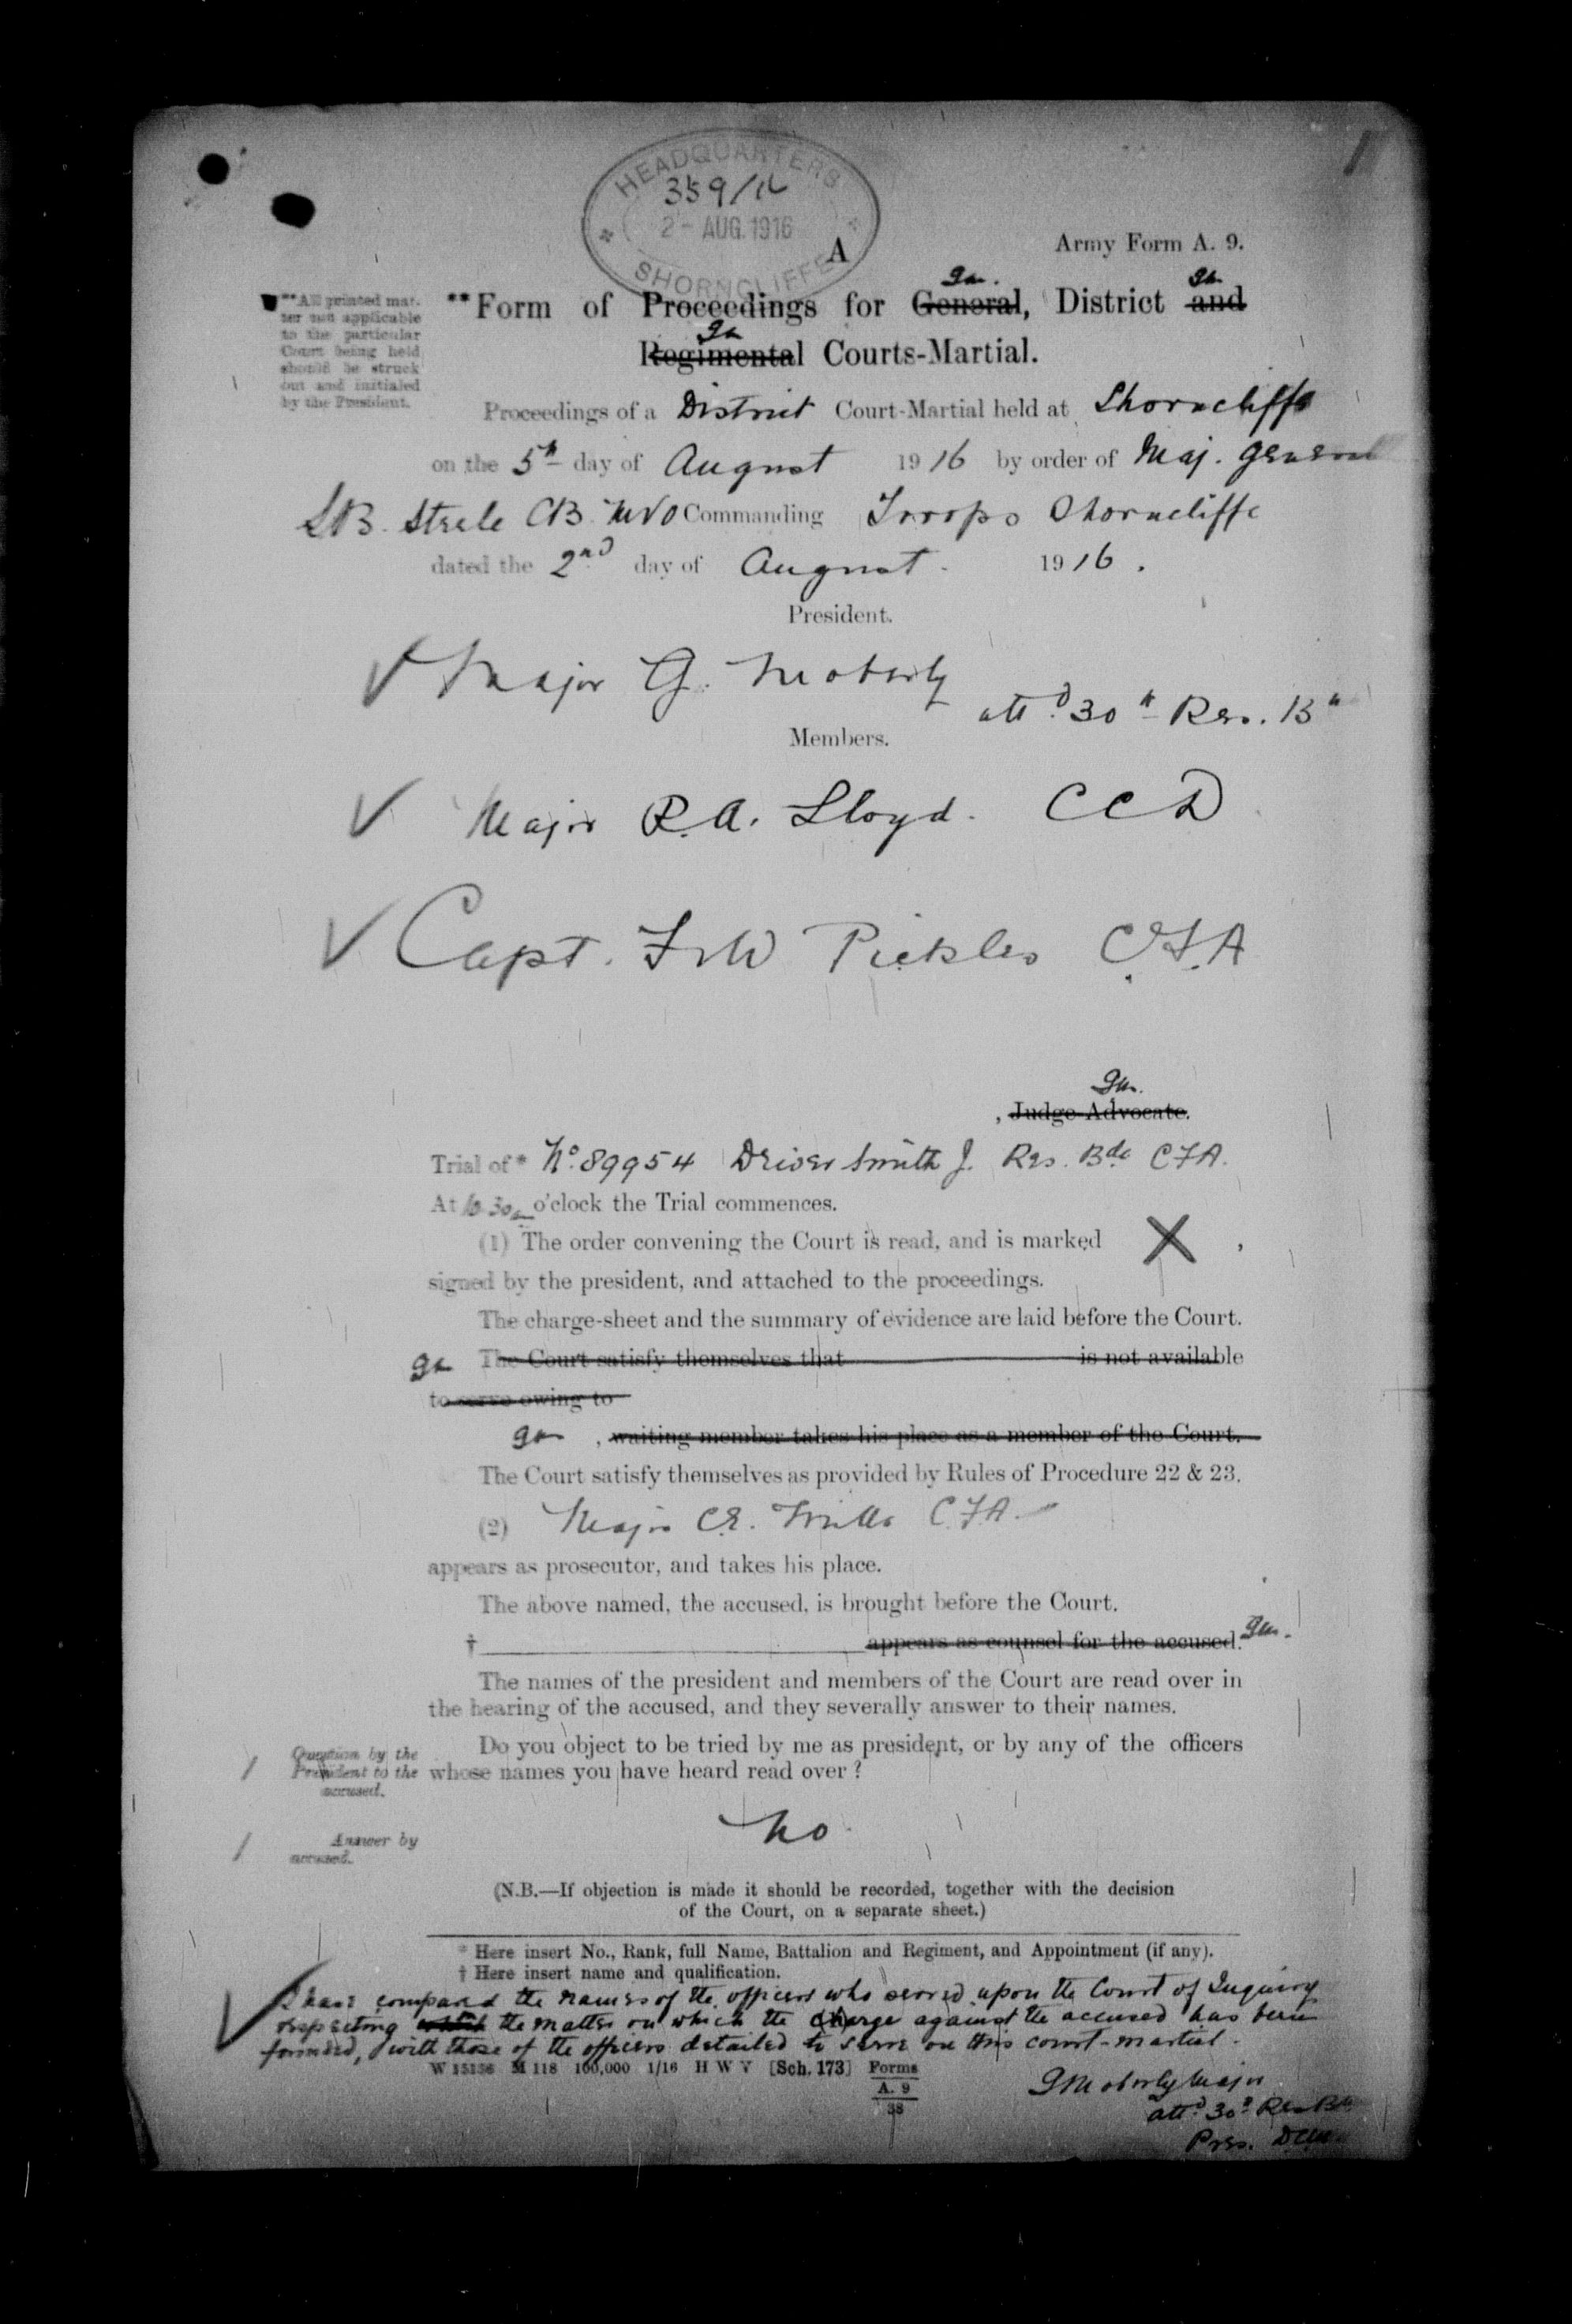 HEADQUARTERS
359/16
2 - AUG. 1916
SHORNCLIFFE
A
Army Form A. 9.
**Form of Proceedings for General, District and
Regimental Courts-Martial.
**All printed mat-
ter not applicable
to the particular
Court being held
should be struck
out and initialed
by the President.
Proceedings of a District Court-Martial held at Shorncliffe
on the 5th day of August 1916 by order of Maj. General
S.B. Steele CB MVO Commanding Troops Shorncliffe
dated the 2nd day of August. 1916.
President.
Major G. Moberly
attd. 30th Res. Bn
Members.
Major R.A. Lloyd. CCD
Capt. F W Pickles CFA
, Judge-Advocate.
Trial of* No. 89954 Driver Smith J. Res. Bde CFA.
At 10.30 o'clock the Trial commences.
(1) The order convening the Court is read, and is marked X ,
signed by the president, and attached to the proceedings.
The charge-sheet and the summary of evidence are laid before the Court.
The Court satisfy themselves that is not available
to serve owing to
, waiting member takes his place as a member of the Court.
The Court satisfy themselves as provided by Rules of Procedure 22 & 23.
(2) Major C.E. C.F.A.
appears as prosecutor, and takes his place.
The above named, the accused, is brought before the Court.
† appears as counsel for the accused.
The names of the president and members of the Court are read over in
the hearing of the accused, and they severally answer to their names.
Question by the
President to the
accused.
Do you object to be tried by me as president, or by any of the officers
whose names you have heard read over ?
Answer by
accused.
No.
(N.B.—If objection is made it should be recorded, together with the decision
of the Court, on a separate sheet.)
* Here insert No., Rank, full Name, Battalion and Regiment, and Appointment (if any).
† Here insert name and qualification.
I have compared the names of the officers who served upon the Court of Inquiry
respecting which the matter on which the charge against the accused has been
formed, with those of the officers detailed to serve on this court-martial.
W 15136 M 118 100,000 1/16 H W V [Sch. 173] Forms
A. 9
38
G Moberly Major
attd. 30th Res Bn
Pres. DCM